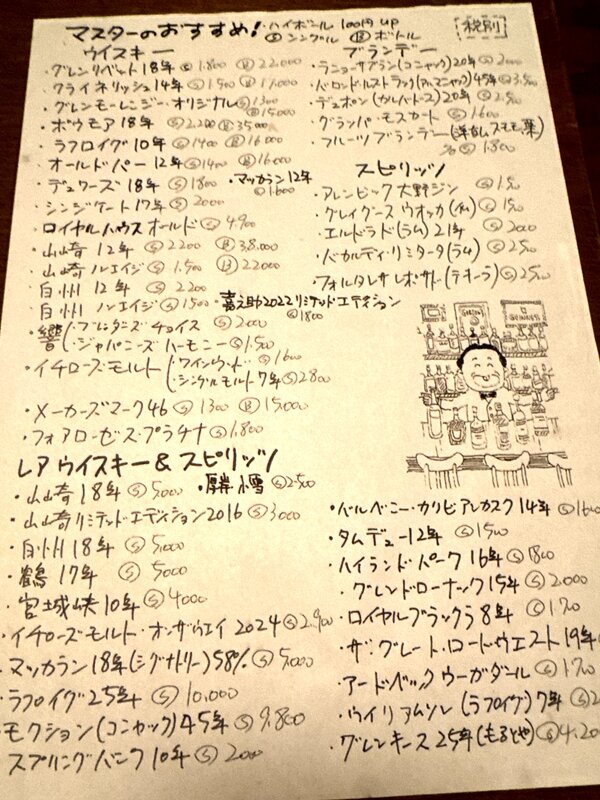 マスターのおすすめ! ・ハイボール 100円up
Ⓢ シングル Ⓑ ボトル
税別
ウイスキー
・グレンリベット18年 Ⓢ1.800 Ⓑ22.000
・クライネリッシュ14年 Ⓢ1.500 Ⓑ17.000
・グレンモーレンジー・オリジナル Ⓢ1300 Ⓑ15.000
・ボウモア18年 Ⓢ2.200 Ⓑ35.000
・ラフロイグ10年 Ⓢ1400 Ⓑ16.000
・オールドパー12年 Ⓢ1400 Ⓑ16.000
・デュワーズ18年 Ⓢ1800 ・マッカラン12年 Ⓢ1.600
・シンジケート17年 Ⓢ2000
・ロイヤルハウスオールド Ⓢ4.900
・山崎12年 Ⓢ2200 Ⓑ38.000
・山崎ノンエイジ Ⓢ1.500 Ⓑ22000
・白州12年 Ⓢ2200
・白州ノンエイジ Ⓢ1500 ・嘉之助2022リミテッドエディション Ⓢ1800
・響 ・ブレンダーズチョイス Ⓢ2000
・ジャパニーズハーモニー Ⓢ1.500
・イチローズモルト ・ワインウッド Ⓢ1600
・シングルモルト7年 Ⓢ2800
・メーカーズマーク46 Ⓢ1300 Ⓑ15.000
・フォアローゼズ・プラチナ Ⓢ1.800
ブランデー
・ラニョーサブラン(コニャック)20年 Ⓢ2000
・バロンドルストラック(アルマニャック)45年 Ⓢ3.500
・デュポン(カルバドース)20年 Ⓢ2.500
・グランパ・モスカート Ⓢ1600
・フルーツブランデー(洋なし スモモ 栗) Ⓢ1.800
スピリッツ
・アレンビック大野ジン
・グレイグースウオッカ(仏)
・エルドラド(ラム)21年 Ⓢ2000
・バカルディ・リミターダ(ラム) Ⓢ2500
・フォルタレサレポサド(テキーラ) Ⓢ2500
GUINNESS
レアウイスキー&スピリッツ
・山崎18年 Ⓢ5000 Ⓢ2500
・山崎リミテッドエディション2016 Ⓢ3000
・白州18年 Ⓢ5.000
・鶴17年 Ⓢ5000
・宮城峡10年 Ⓢ4000
・イチローズモルト・オンザウエイ2024 Ⓢ2.900
・マッカラン18年(シグナトリー)58% Ⓢ5.000
・ラフロイグ25年 Ⓢ10.000
・モクション(コニャック)45年 Ⓢ9.800
・スプリングバンク10年 Ⓢ2000
・バルベニー・カリビアンカスク14年 Ⓢ1600
・タムデュー12年 Ⓢ1500
・ハイランドパーク16年 Ⓢ1800
・グレンドローナック15年 Ⓢ2.000
・ロイヤルブラックラ8年 Ⓢ1.700
・ザ・グレート・ロードウエスト19年
・アードベックウーガダール Ⓢ1.700
・ウイリアムソン(ラフロイグ)7年 Ⓢ2
・グレンキース25年(もるとや) Ⓢ4.200